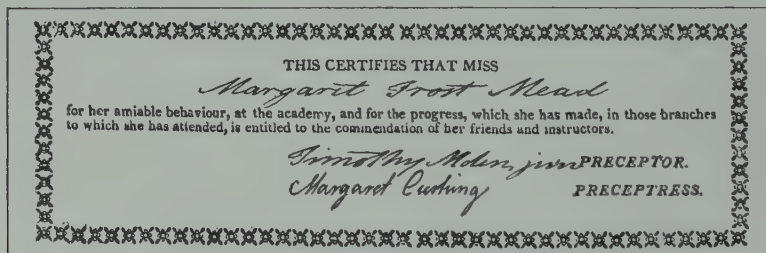 THIS CERTIFIES THAT MISS
Margaret Frost Mead
for her amiable behaviour, at the academy, and for the progress, which she has made, in those branches
to which she has attended, is entitled to the commendation of her friends and instructors.
Timothy Alden, junr PRECEPTOR.
Margaret Cushing PRECEPTRESS.